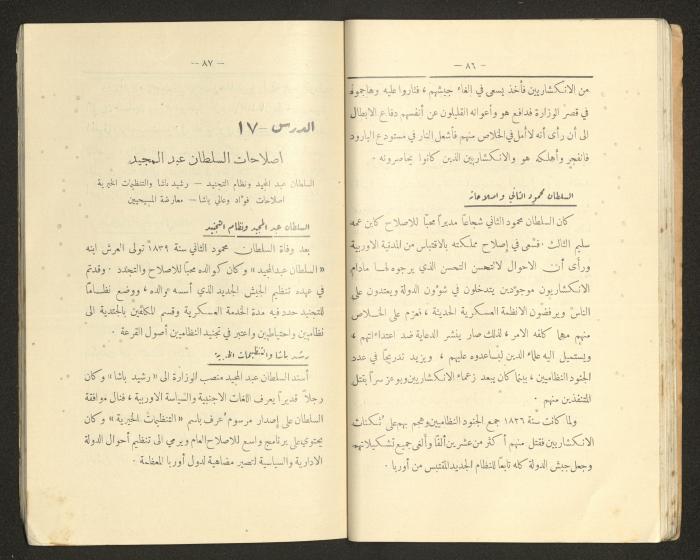 — ٨٦ —
من الانكشاريين فأخذ يسعى في الغاء جيشهم ، فثاروا عليه وهاجموه
في قصر الوزارة فدافع هو وأعوانه القليلون عن أنفسهم دفاع الابطال
الى أن رأى أنه لا أمل في الخلاص منهم فأشعل النار في مستودع البارود
فانفجر وأهلكه هو والانكشاريين الذين كانوا يحاصرونه .
السلطان محمود الثاني واصلاحاته
كان السلطان محمود الثاني شجاعاً مديراً محبّاً للاصلاح كابن عمه
سليم الثالث . فسعى في إصلاح مملكته بالاقتباس من المدنية الاوربية
ورأى أن الاحوال لا تتحسن التحسن الذي يرجوه لها مادام
الانكشاريون موجودين يتدخلون في شؤون الدولة ويعتدون على
الناس ويرفضون الانظمة العسكرية الحديثة ، فعزم على الخلاص
منهم مهما كلفه الامر ، لذلك صار ينشر الدعاية ضد اعتداءاتهم ،
ويستميل اليه علماء الدين ليساعدوه عليهم ، ويزيد تدريجاً في عدد
الجنود النظاميين ، بينما كان يبعد زعماء الانكشاريين ويوعز سراً بقتل
المتنفذين منهم .
ولما كانت سنة ١٨٢٦ جمع الجنود النظاميين وهجم بهم على ثكنات
الانكشاريين فقتل منهم أكثر من عشرين ألفاً وألغى جميع تشكيلاتهم
وجعل جيش الدولة كله تابعاً للنظام الجديد المقتبس من أوربا .
— ٨٧ —
الدرس – ١٧
اصلاحات السلطان عبد المجيد
السلطان عبد المجيد ونظام التجنيد — رشيد باشا والتنظيمات الخيرية
اصلاحات فؤاد وعالي باشا — معارضة المسيحيين
السلطان عبد المجيد ونظام التجنيد
بعد وفاة السلطان محمود الثاني سنة ١٨٣٩ تولى العرش ابنه
« السلطان عبد المجيد » وكان كوالده محبّاً للاصلاح والتجدد . وقد تم
في عهده تنظيم الجيش الجديد الذي أسسه والده ، ووضع نظاماً
للتجنيد حدد فيه مدة الخدمة العسكرية وقسم المكلفين بالجندية الى
نظاميين واحتياطيين واعتبر في تجنيد النظاميين أصول القرعة .
رشيد باشا والتنظيمات الخيرية
أسند السلطان عبد المجيد منصب الوزارة الى « رشيد باشا » وكان
رجلاً قديراً يعرف اللغات الاجنبية والسياسة الاوربية ، فنال موافقة
السلطان على إصدار مرسوم عُرف باسم « التنظيمات الخيرية » وكان
يحتوي على برنامج واسع للاصلاح العام ويرمي الى تنظيم أحوال الدولة
الادارية والسياسية لتصير مضاهية لدول أوربا المعظمة .